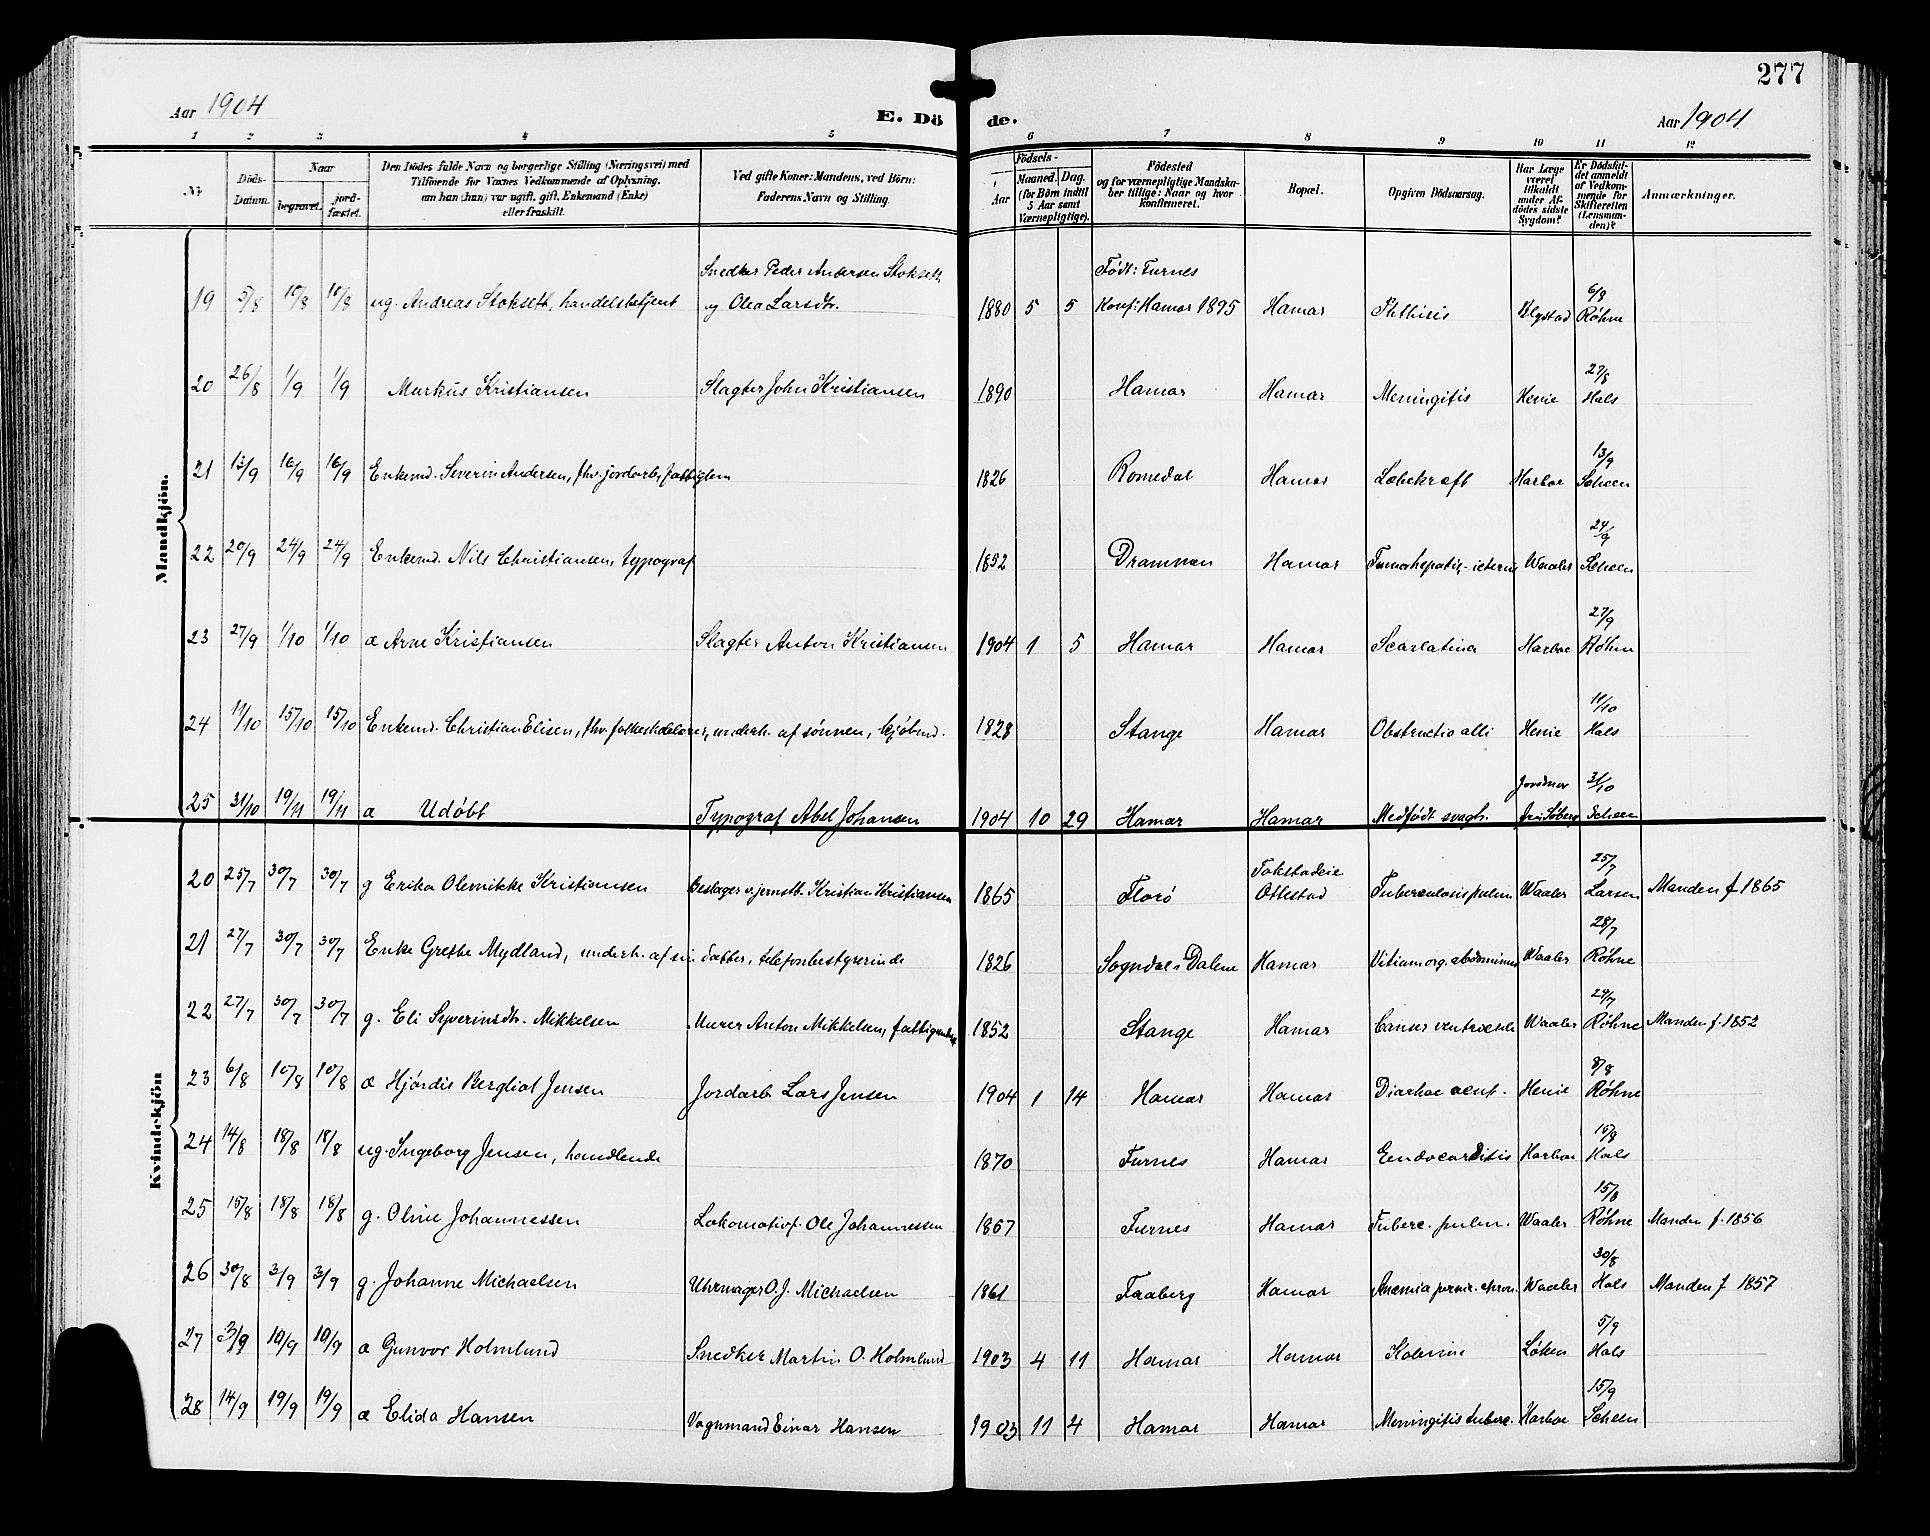 277
Aar 1904
E. Dö de.
Aar 1904
1 2 3 4 5 6 7 8 9 10 11 12
No
Döds-Datum.
Naar
begravet.
jord-fæstet.
Den Dödes fulde Navn og borgerlige Stilling (Næringsvei) med
Tilföiende for Voxnes Vedkommende af Oplysning.
om han (hun) var ugift, gift, Enkemand (Enke)
eller fraskilt.
Ved gifte Koner: Mandens, ved Börn:
Faderens Navn og Stilling.
Födsels-
Aar
Maaned. Dag.
(for Börn indtil
5 Aar samt
Værnepligtige).
Födested
og for værnepligtige Mandska-
ber tillige: Naar og hvor
konfirmeret.
Bopæl.
Opgiven Dödsaarsag.
Har Læge
været
tilkaldt
under Af-
dödes sidste
Sygdom?
Er Dödsfal-
det anmeldt
af Vedkom-
mende for
Skifteretten
(Lensman-
den)?
Anmærkninger.
Mandkjön.
19 5/8 10/8 10/8 ug. Andreas Stoksett, handelsbetjent Snedker Peder Andersen Stoksett
og Olea Larsdtr. 1880 5 5 Født: Furnes
Konf: Hamar 1895 Hamar Phthisis Ulystad 6/8 Røhne
20 26/8 1/9 1/9 Markus Kristiansen Slagter John Kristiansen 1890 Hamar Hamar Meningitis Henie 27/8 Hals
21 13/9 16/9 16/9 Enkemd. Severin Andersen, fhv. jordarb, fattiglem 1826 Romedal Hamar Læbekræft Harboe 13/9 Scheen
22 20/9 24/9 24/9 Enkemd. Nils Christiansen, typograf 1852 Drammen Hamar Tumor hepatis, - icterus Waaler 24/9 Scheen
23 27/9 1/10 1/10 æ Arne Kristiansen Slagter Anton Kristiansen 1904 1 5 Hamar Hamar Scarlatina Harboe 27/9 Røhne
24 11/10 15/10 15/10 Enkemd. Christian Elisen, fhv. folkeskolelærer, underh. af sønnen, kjøbmd. 1828 Stange Hamar Obstructio alvi Henie 11/10 Hals
25 31/10 19/11 19/11 æ Udøbt Typograf Abel Johansen 1904 10 29 Hamar Hamar Medfødt svagh. Jordmor fru Søberg 31/10 Scheen
Kvindekjön
20 25/7 30/7 30/7 g Erika Olemikke Kristiansen Beslager v. jernstb. Kristian Kristiansen 1865 Florø Tokstadeie
Ottestad Tuberculosis pulm Waaler 25/7 Larsen Manden f 1865
21 27/7 30/7 30/7 Enke Grethe Mydland, underh. af sin datter, telefonbestyrerinde 1826 Sogndal i Dalene Hamar Vitium org. abdominis Waaler 28/7 Røhne
22 27/7 30/7 30/7 g. Eli Syverinsdtr. Mikkelsen Murer Anton Mikkelsen, fattigunderst 1852 Stange Hamar Cancer ventriculi Waaler 29/7 Røhne Manden f. 1852
23 6/8 10/8 10/8 æ Hjørdis Bergliot Jensen Jordarb. Lars Jensen 1904 1 14 Hamar Hamar Diarhoe acut. Henie 8/8 Røhne
24 14/8 18/8 18/8 ug. Ingeborg Jensen, handlende 1870 Furnes Hamar Eendocarditis Harboe 15/8 Hals
25 15/8 18/8 18/8 g. Oline Johannessen Lokomotivf. Ole Johannessen 1867 Furnes Hamar Tuberc. pulm. Waaler 15/8 Røhne Manden f. 1856
26 30/8 3/9 3/9 g. Johanne Michaelsen Uhrmager O. J. Michaelsen 1861 Faaberg Hamar Anæmia pernic. chron. Waaler 30/8 Hals Manden f 1857
27 3/9 10/9 10/9 æ Gunvor Holmlund Snedker Martin O. Holmlund 1903 4 11 Hamar Hamar Kolerine Løken 5/9 Hals
28 14/9 19/9 19/9 æ Elida Hansen Vognmand Einar Hansen 1903 11 4 Hamar Hamar Meningitis tuberc. Harboe 15/9 Scheen